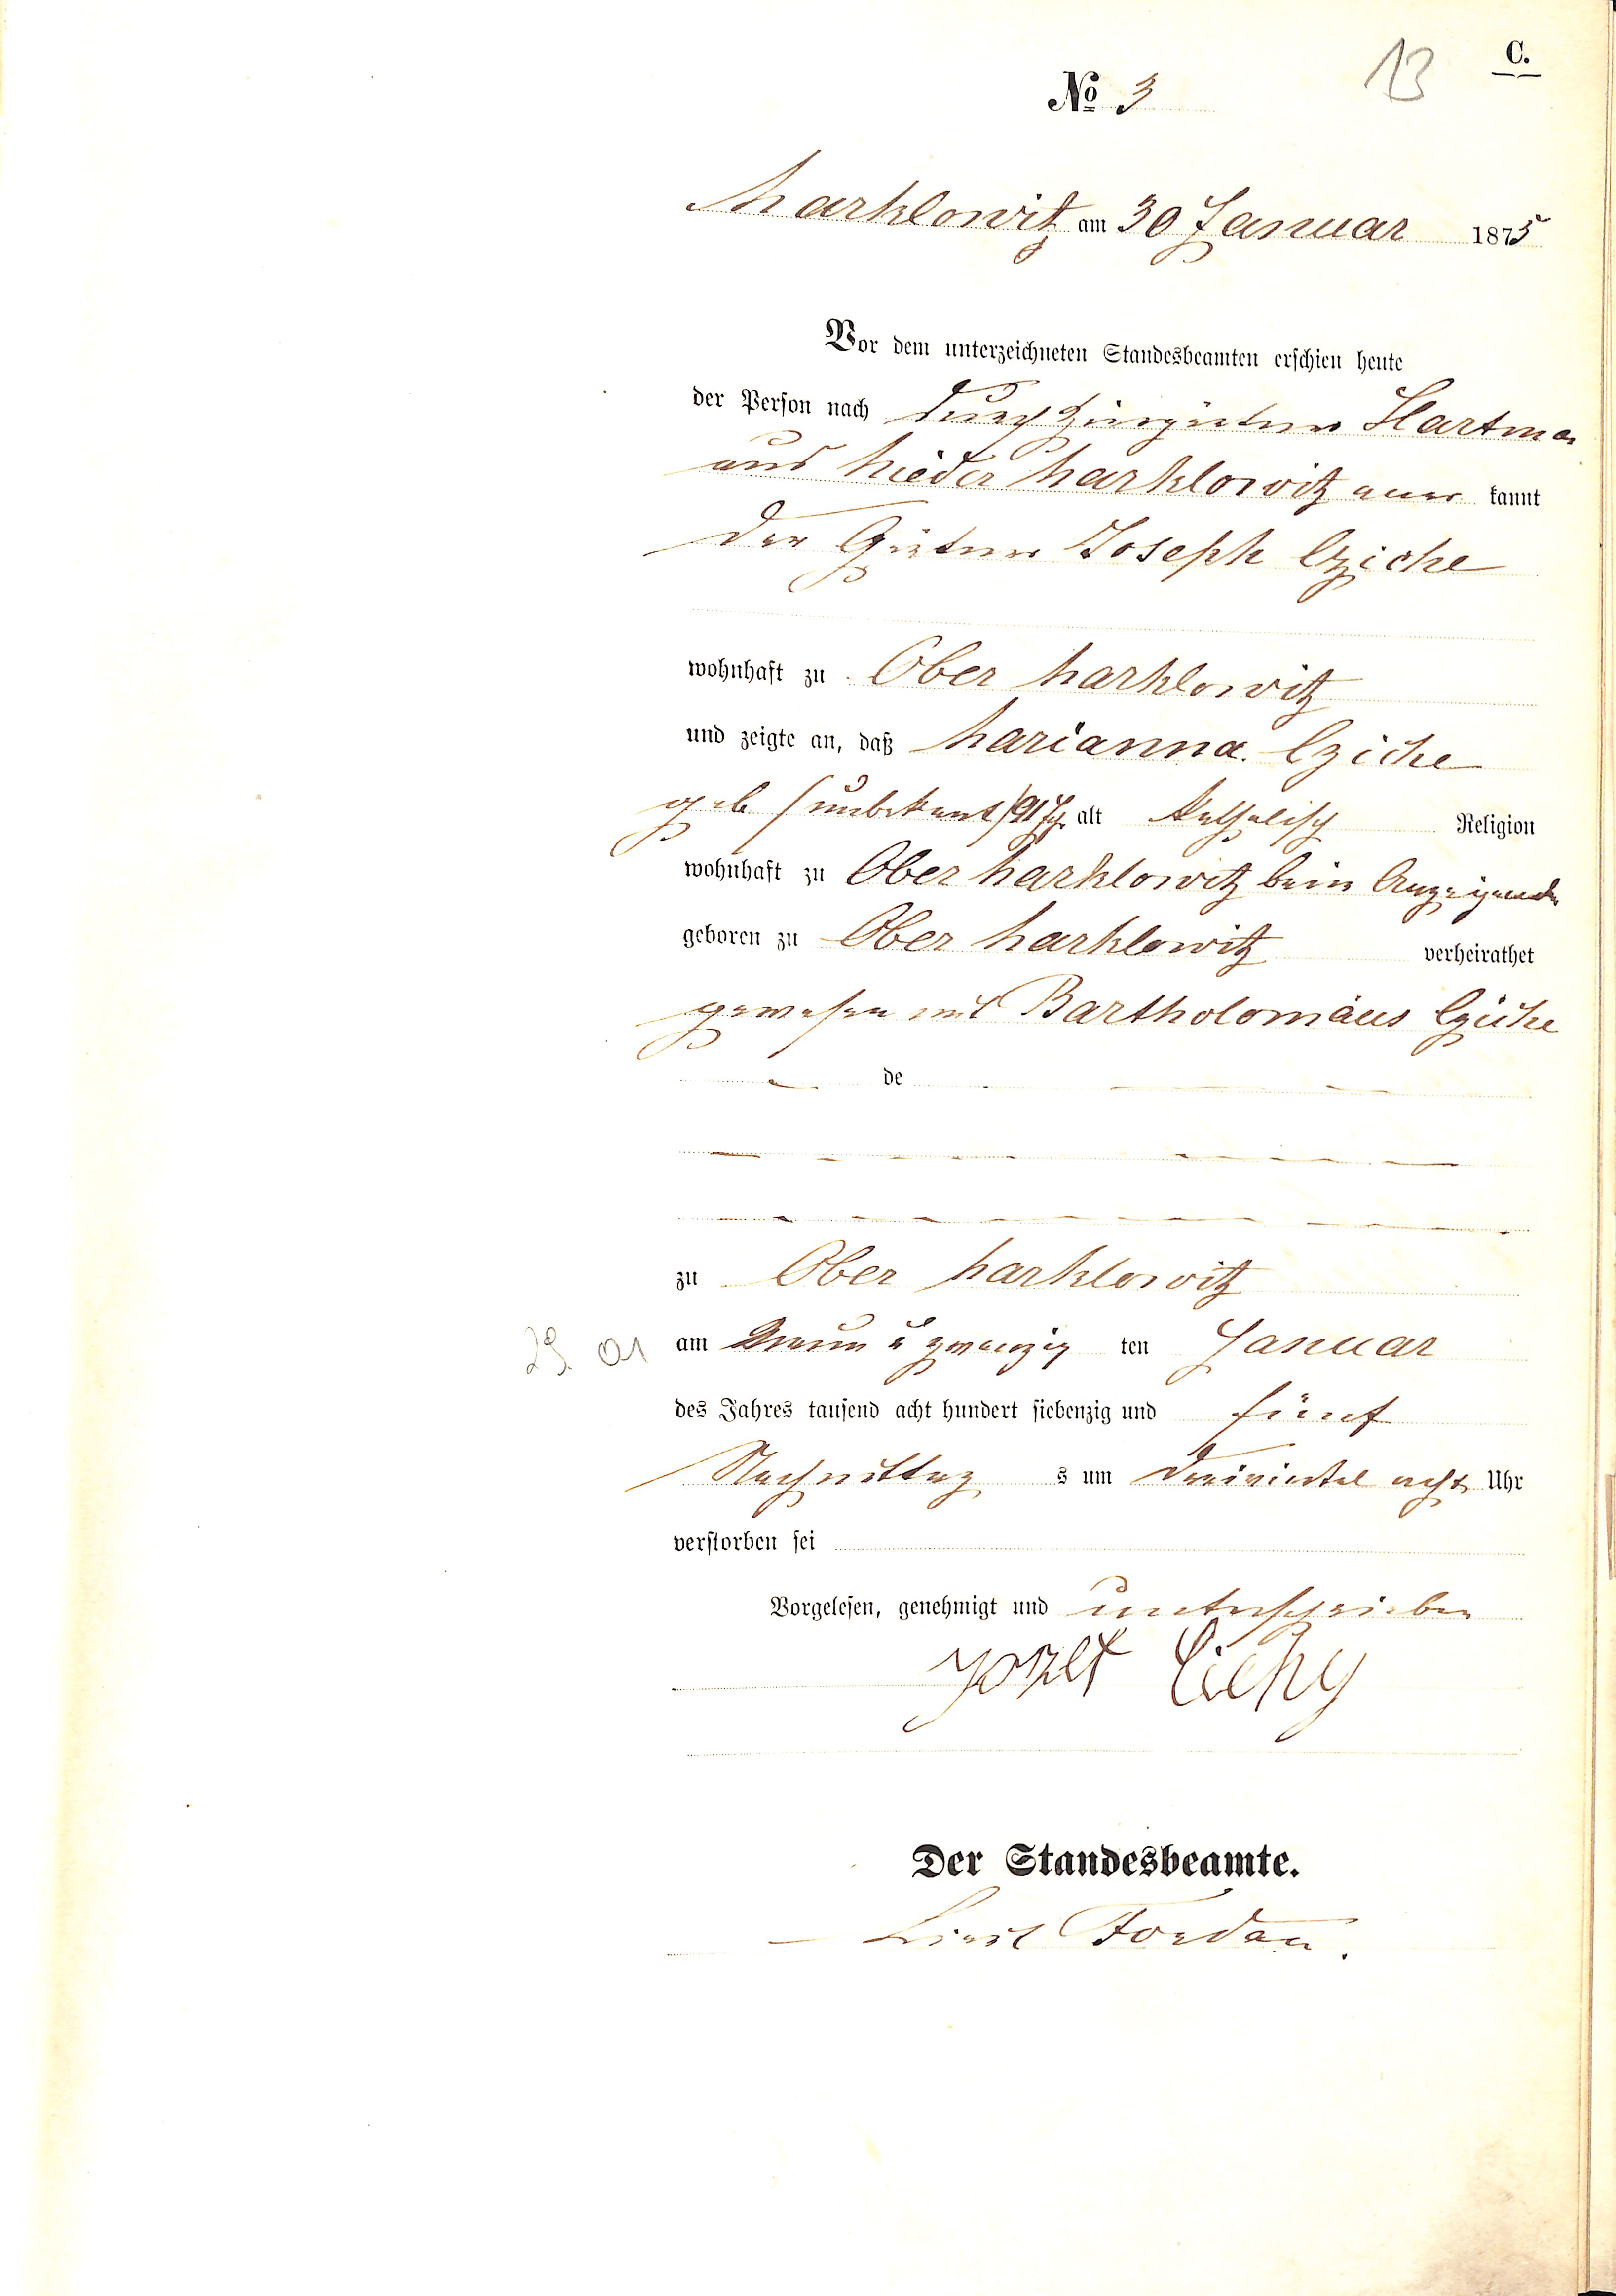 13
C.
No 3
Marklowitz am 30 Januar 1875
Vor dem unterzeichneten Standesbeamten erschien heute
der Person nach durch Hartman
aus Nieder Marklowitz aner kannt
der Gärtner Joseph Cziche
wohnhaft zu Ober Marklowitz
und zeigte an, daß Marianna Cziche
geb (unbekant) 91 J. alt katholisch Religion
wohnhaft zu Ober Marklowitz beim Anzeigenden
geboren zu Ober Marklowitz verheirathet
gewesen mit Bartholomäus Cziche
de
zu Ober Marklowitz
29. 01 am Neun u zwanzig ten Januar
des Jahres tausend acht hundert siebenzig und fünf
Nachmittag s um dreiviertel acht Uhr
verstorben sei
Vorgelesen, genehmigt und unterschrieben
Jozef Cichy
Der Standesbeamte.